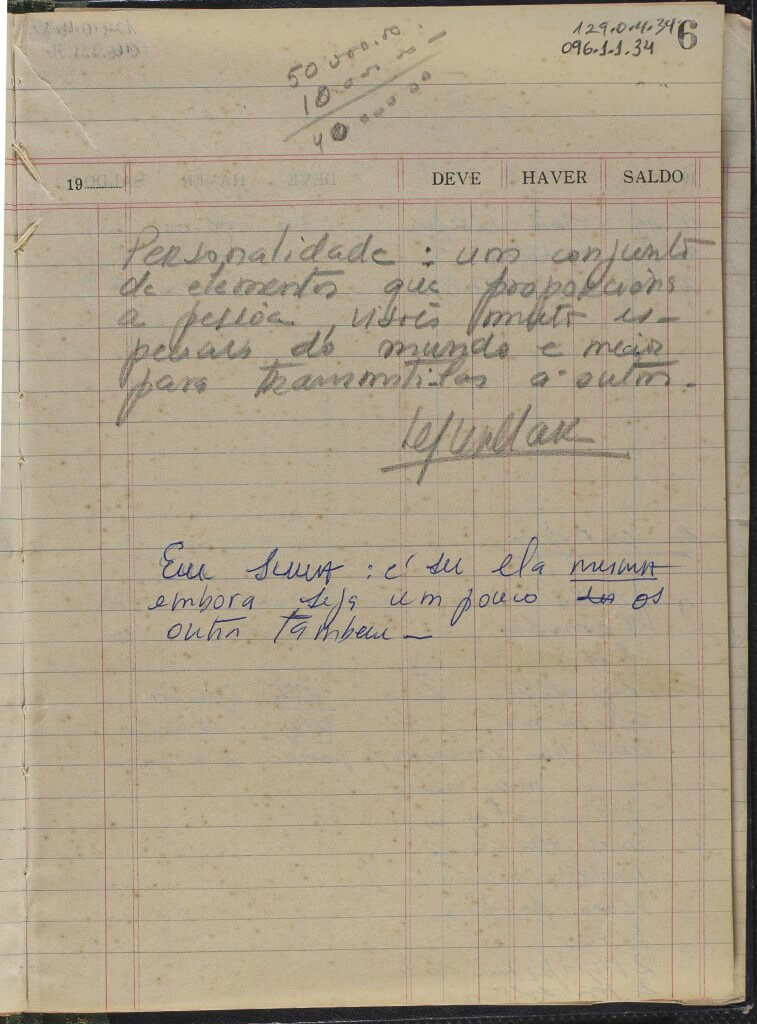 129.0.4.34 6
096.1.1.34
50.000.00
10.000.00
40.000.00
19 DEVE HAVER SALDO
Personalidade : um conjunto
de elementos que proporciona
a pessoa visões muito es-
peciais do mundo e meios
para transmiti-las a outros.
Em suma : é ser ela mesma
embora seja um pouco os
outros também